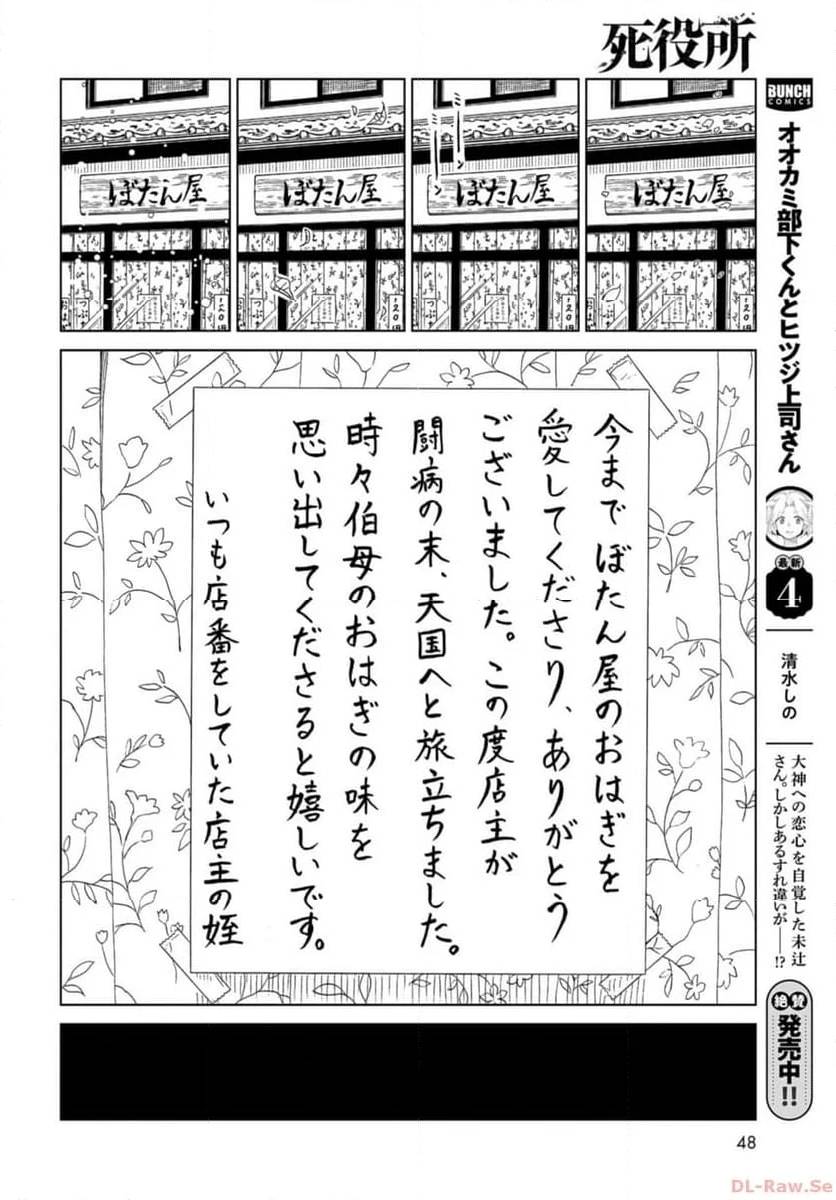 死役所
ぼたん屋
ミーンミーン
ぼたん屋
ぼたん屋
ぼたん屋
120円
120円
120円
つぶ
120円
つぶ
今までぼたん屋のおはぎを
愛してくださり、ありがとう
ございました。この度店主が
闘病の末、天国へと旅立ちました。
時々伯母のおはぎの味を
思い出してくださると嬉しいです。
いつも店番をしていた店主の姪
BUNCH
COMICS
オオカミ部下くんとヒツジ上司さん
最新
4
清水しの
大神への恋心を自覚した未辻
さん。しかしあるすれ違いが――!?
絶賛
発売中!!
48
DL-Raw.Se